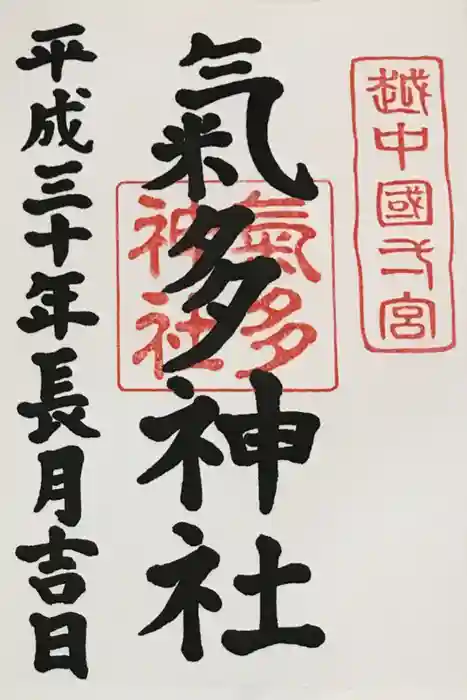 越中國弌宮
氣多神社
氣多
神社
平成三十年長月吉日